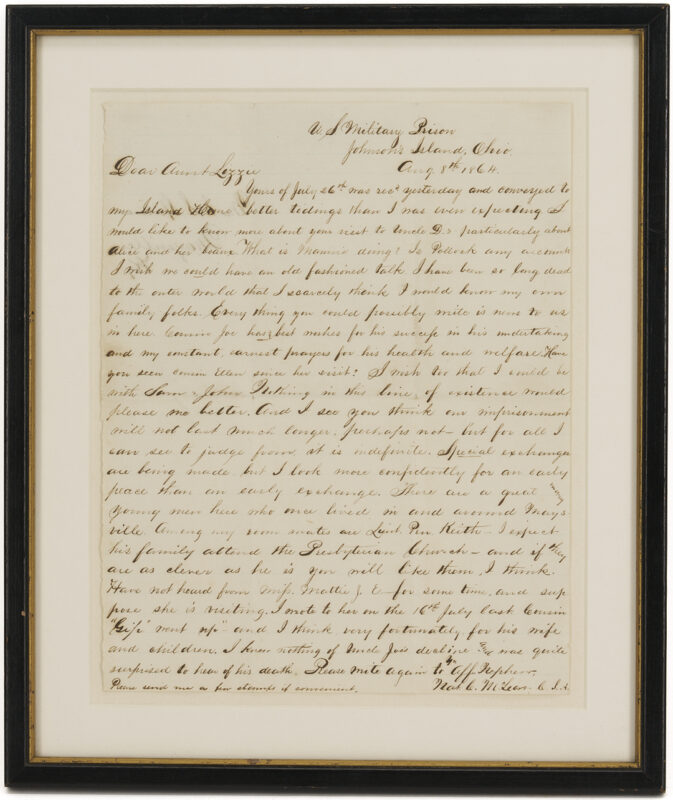 U, S Military Prison
Johnson's Island, Ohio,
Aug 8th 1864.
Dear Aunt Lizzie
Yours of July 26th was recd yesterday and conveyed to
my Island Home better tidings than I was even expecting I
would like to know more about your visit to Uncle D.s particularly about
Alice and her beaux What is Mamie doing? Is Pollock any account
I wish we could have an old fashioned talk I have been so long dead
to the outer world that I scarcely think I would know my own
family folks. Every thing you could possibly write is news to us
in here. Cousin Joe has best wishes for his success in his undertaking
and my constant, earnest prayers for his health and welfare. Have
you seen cousin since her visit? I wish too that I could be
with Sam & John Nothing in this line, of existence would
please me better. And I see you think our imprisonment
will not last much longer; perhaps not - but for all I
can see to judge from, it is indefinite. Special exchanges
are being made but I look more confidently for an early
peace than an early exchange. There are a great many
young men here who once lived in and around Mays-
ville. Among my room mates are Lieut. Pen Keith - I expect
his family attend the Presbyterian Church - and if they
are as clever as he is you will like them, I think.
Have not heard from Miss Mattie J. C - for some time, and sup
pose she is visiting. I wrote to her on the 16th July last Cousin
went up" and I think very fortunately for his wife
and children. I knew nothing of Uncle Jos decline and was quite
surprised to hear of his death. Please write again to yr aff. Nephew,
Please send me a few stamps if convenient. Nat. C. McLean C. S. A.